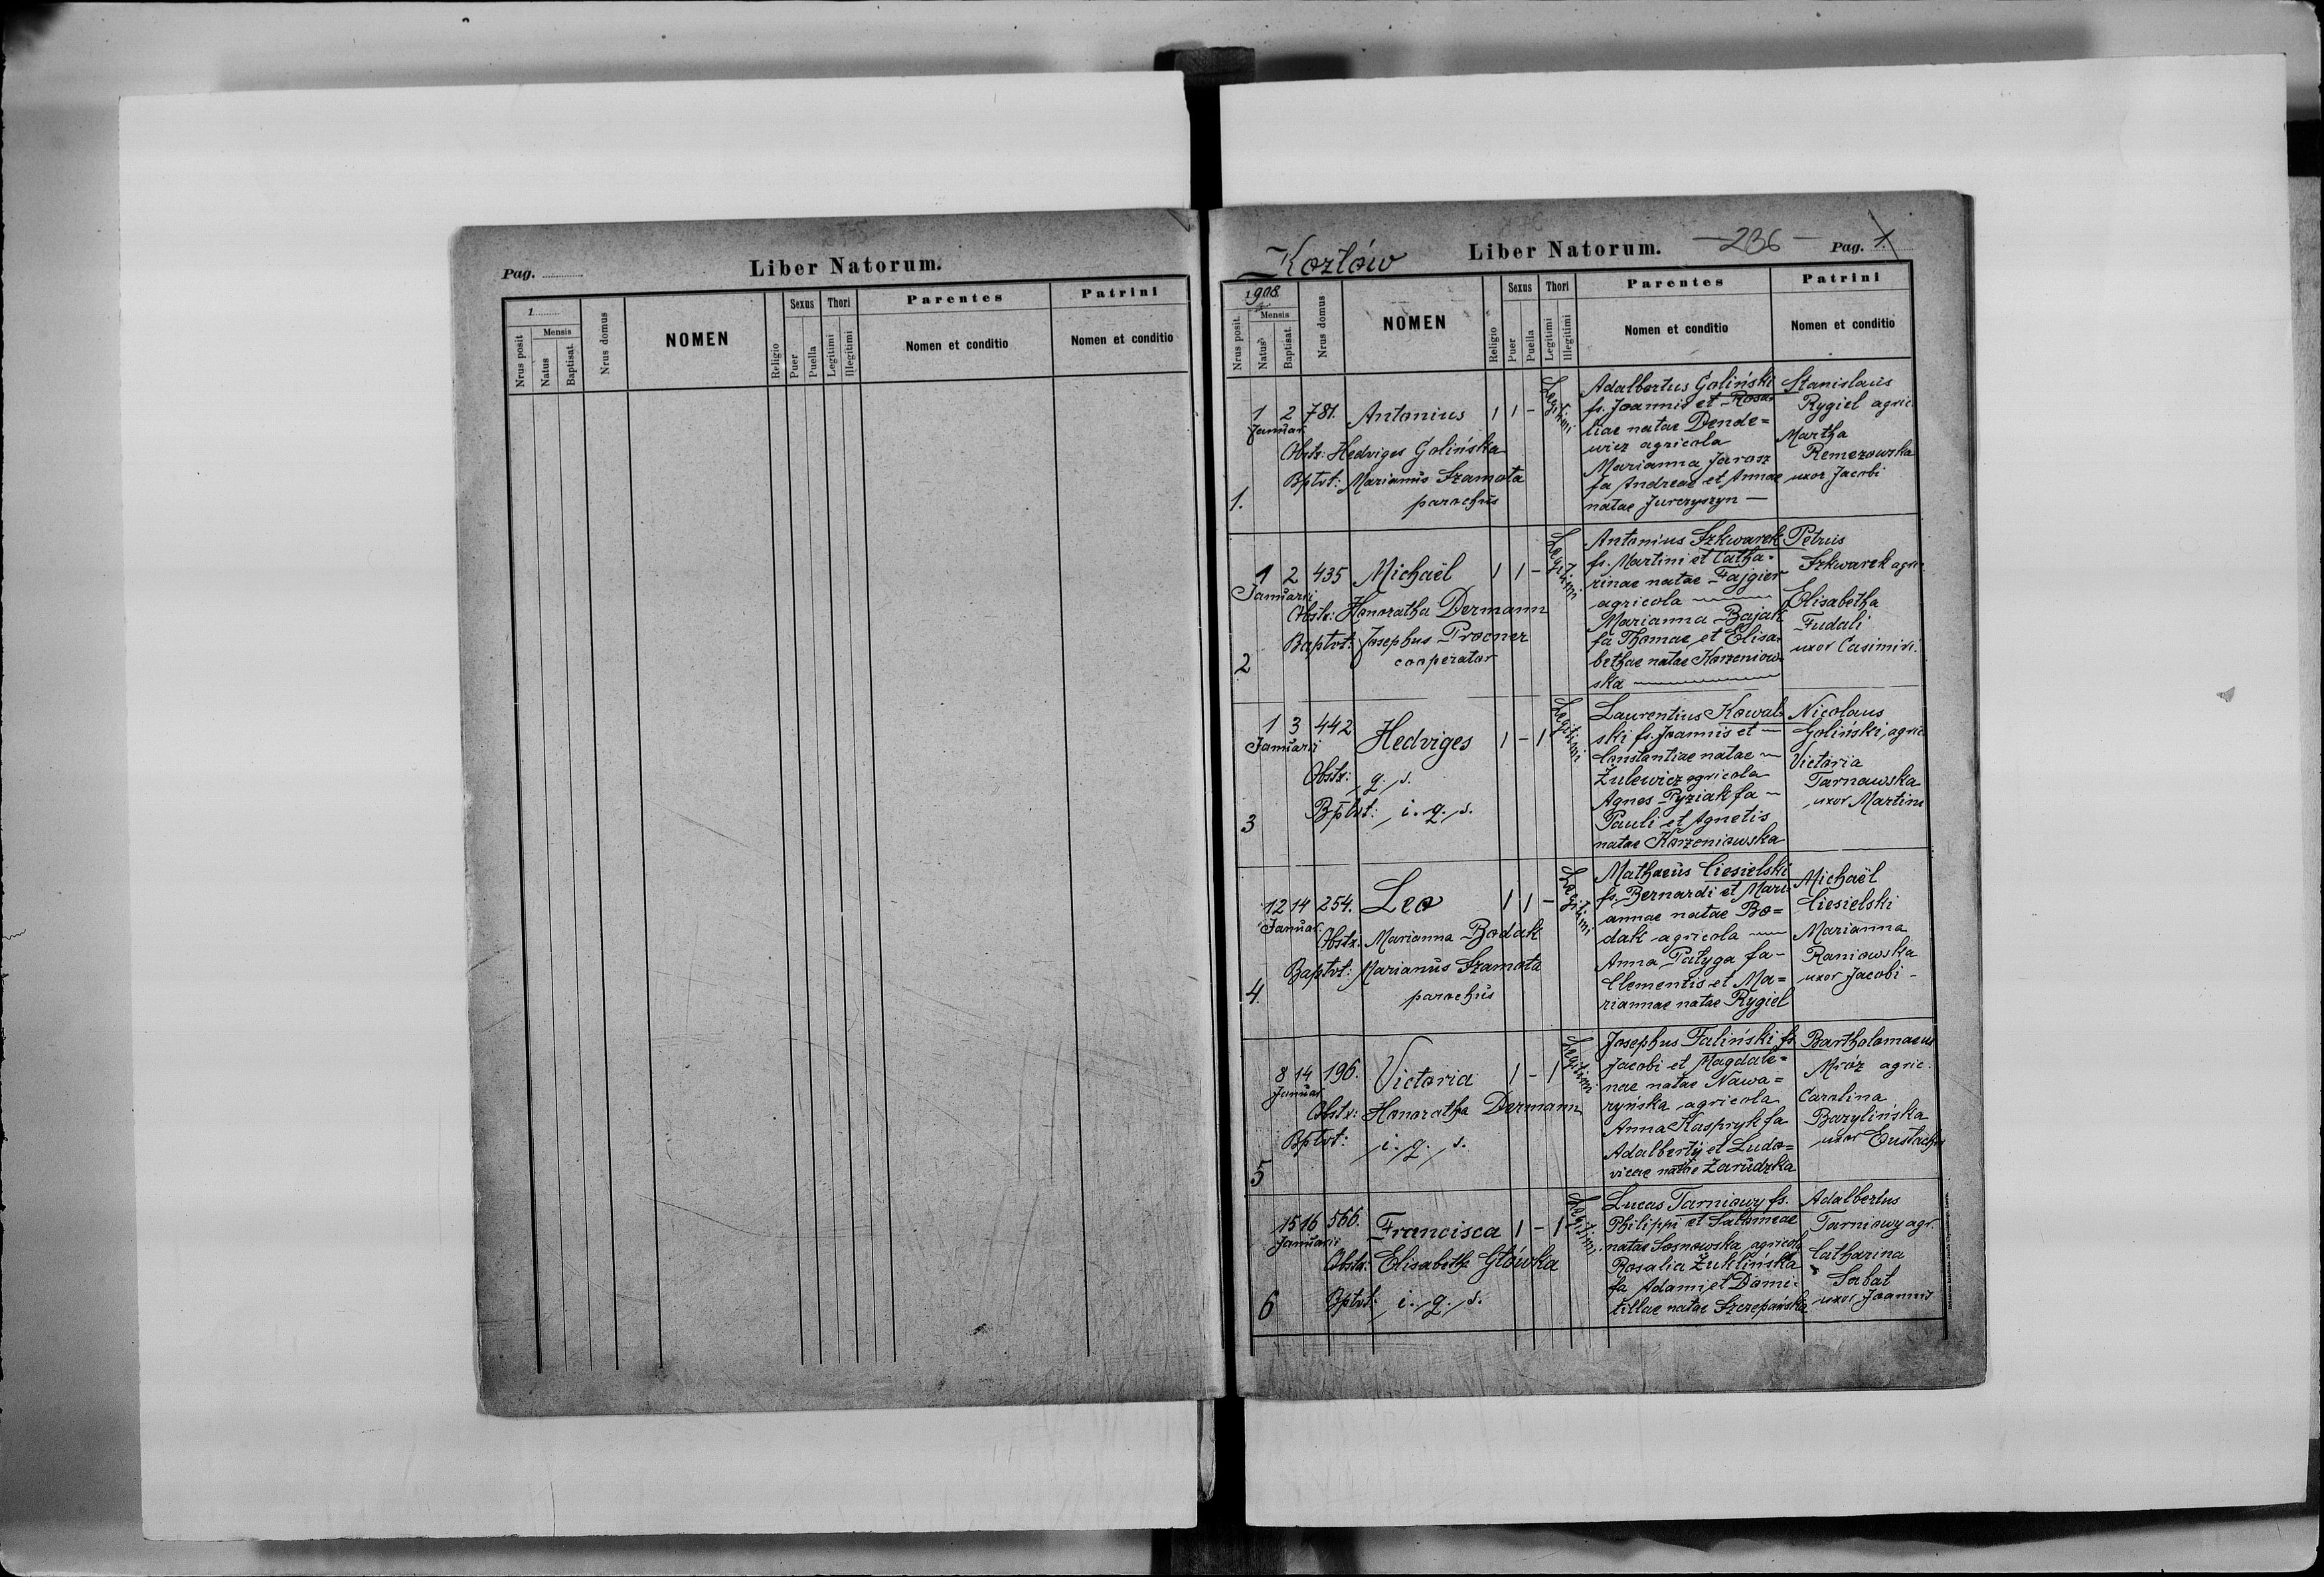 Pag.
Liber Natorum.
1
Nrus posit
Mensis
Natus
Baptisat.
Nrus domus
NOMEN
Religio
Sexus
Puer
Puella
Thori
Legitimi
Illegitimi
Parentes
Nomen et conditio
Patrini
Nomen et conditio
Kozłów
Liber Natorum.
-236-
Pag. 1
1908
Nrus posit.
Mensis
Natus
Baptisat.
Nrus domus
NOMEN
Religio
Sexus
Puer
Puella
Thori
Legitimi
Illegitimi
Parentes
Nomen et conditio
Patrini
Nomen et conditio
1 2 781. Antonius 1 1 -
Januar.
Obstr: Hedviges Golińska
Bptvt: Marianus Szamota
parochus
1.
Legitimi
Adalbertus Goliński
fs. Joannis et Rosa-
liae natae Dende=
wicz agricola
Marianna Jarosz
fa Andreae et Annae
natae Jurczyszyn —
Stanislaus
Rygiel agric.
Martha
Remezowska
uxor Jacobi
1 2 435 Michaël 1 1 -
Januarii
Obstr: Honoratha Dermann
Baptvt: Josephus Procner
cooperator
2
Legitimi
Antonius Szkwarek
fs. Martini et Catha-
rinae natae Fajgier
agricola
Marianna Bajak
fa Thomae et Elisa-
bethae natae Korzeniow-
ska
Petrus
Szkwarek agric.
Elisabetha
Fudali
uxor Casimiri.
1 3 442 Hedviges 1 - 1
Januarii
Obstr: q. s.
Bptvt: i. q. s.
3
Legitimi
Laurentius Kowal-
ski fs. Joannis et —
Constantiae natae —
Żulewicz agricola
Agnes Pyziak fa —
Pauli et Agnetis
natae Korzeniowska
Nicolaus
Goliński, agric.
Victoria
Tarnawska
uxor Martini
12 14 254. Leo 1 1 -
Januar.
Obstr: Marianna Bodak
Baptvt: Marianus Szamota
parochus
4.
Legitimi
Mathaeus Ciesielski
fs. Bernardi et Mari-
annae natae Bo=
dak agricola —
Anna Patyga fa -
Clementis et Ma=
riannae natae Rygiel
Michaël
Ciesielski
Marianna
Raniowska
uxor Jacobi -
8 14 196. Victoria 1 - 1
Januar.
Obstr: Honoratha Dermann
Bptvt: i. q. s.
5
Legitimi
Josephus Faliński fs.
Jacobi et Magdale=
nae natae Nawa=
ryńska agricola
Anna Kaspryk fa
Adalberty et Ludo=
vicae natae Zarudzka
Bartholomaeus
Mróz agric.
Carolina
Barylińska
uxor Eustachii
15 16 566. Francisca 1 - 1
Januarii
Obstr: Elisabeth Główka
Bptvt: i. q. s.
6
Legitimi
Lucas Tarniowy fs.
Philippi et Salomeae
natae Sosnowska agricola
Rosalia Żuklińska
fa Adami et Domi-
tillae natae Szczepańska
Adalbertus
Tarniowy agr.
Catharina
Sabat
uxor Joannis